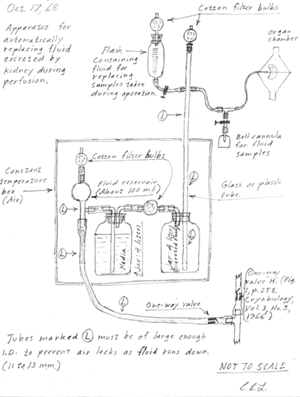 Oct 17, 68
Apparatus for
automatically
replacing fluid
excreted by
kidney during
perfusion.
Cotton filter bulbs
Flask
Containing
fluid for
replacing
samples taken
during operation
Organ
chamber
L
Bell cannula
for fluid
samples
Cotton filter bulbs
Constant
temperature
box
(Air)
Fluid reservoir
(About 100 ml)
Glass or plastic
tube.
L
L
L
L
L
Media
2 liter
Jar A
One-way valve
One-way
valve H. (Fig.
1, p. 251,
Cryobiology,
Vol. 3, No. 3,
1966)
Tubes marked L must be of large enough
I.D. to prevent air locks as fluid runs down.
(11 to 13 mm.)
NOT TO SCALE